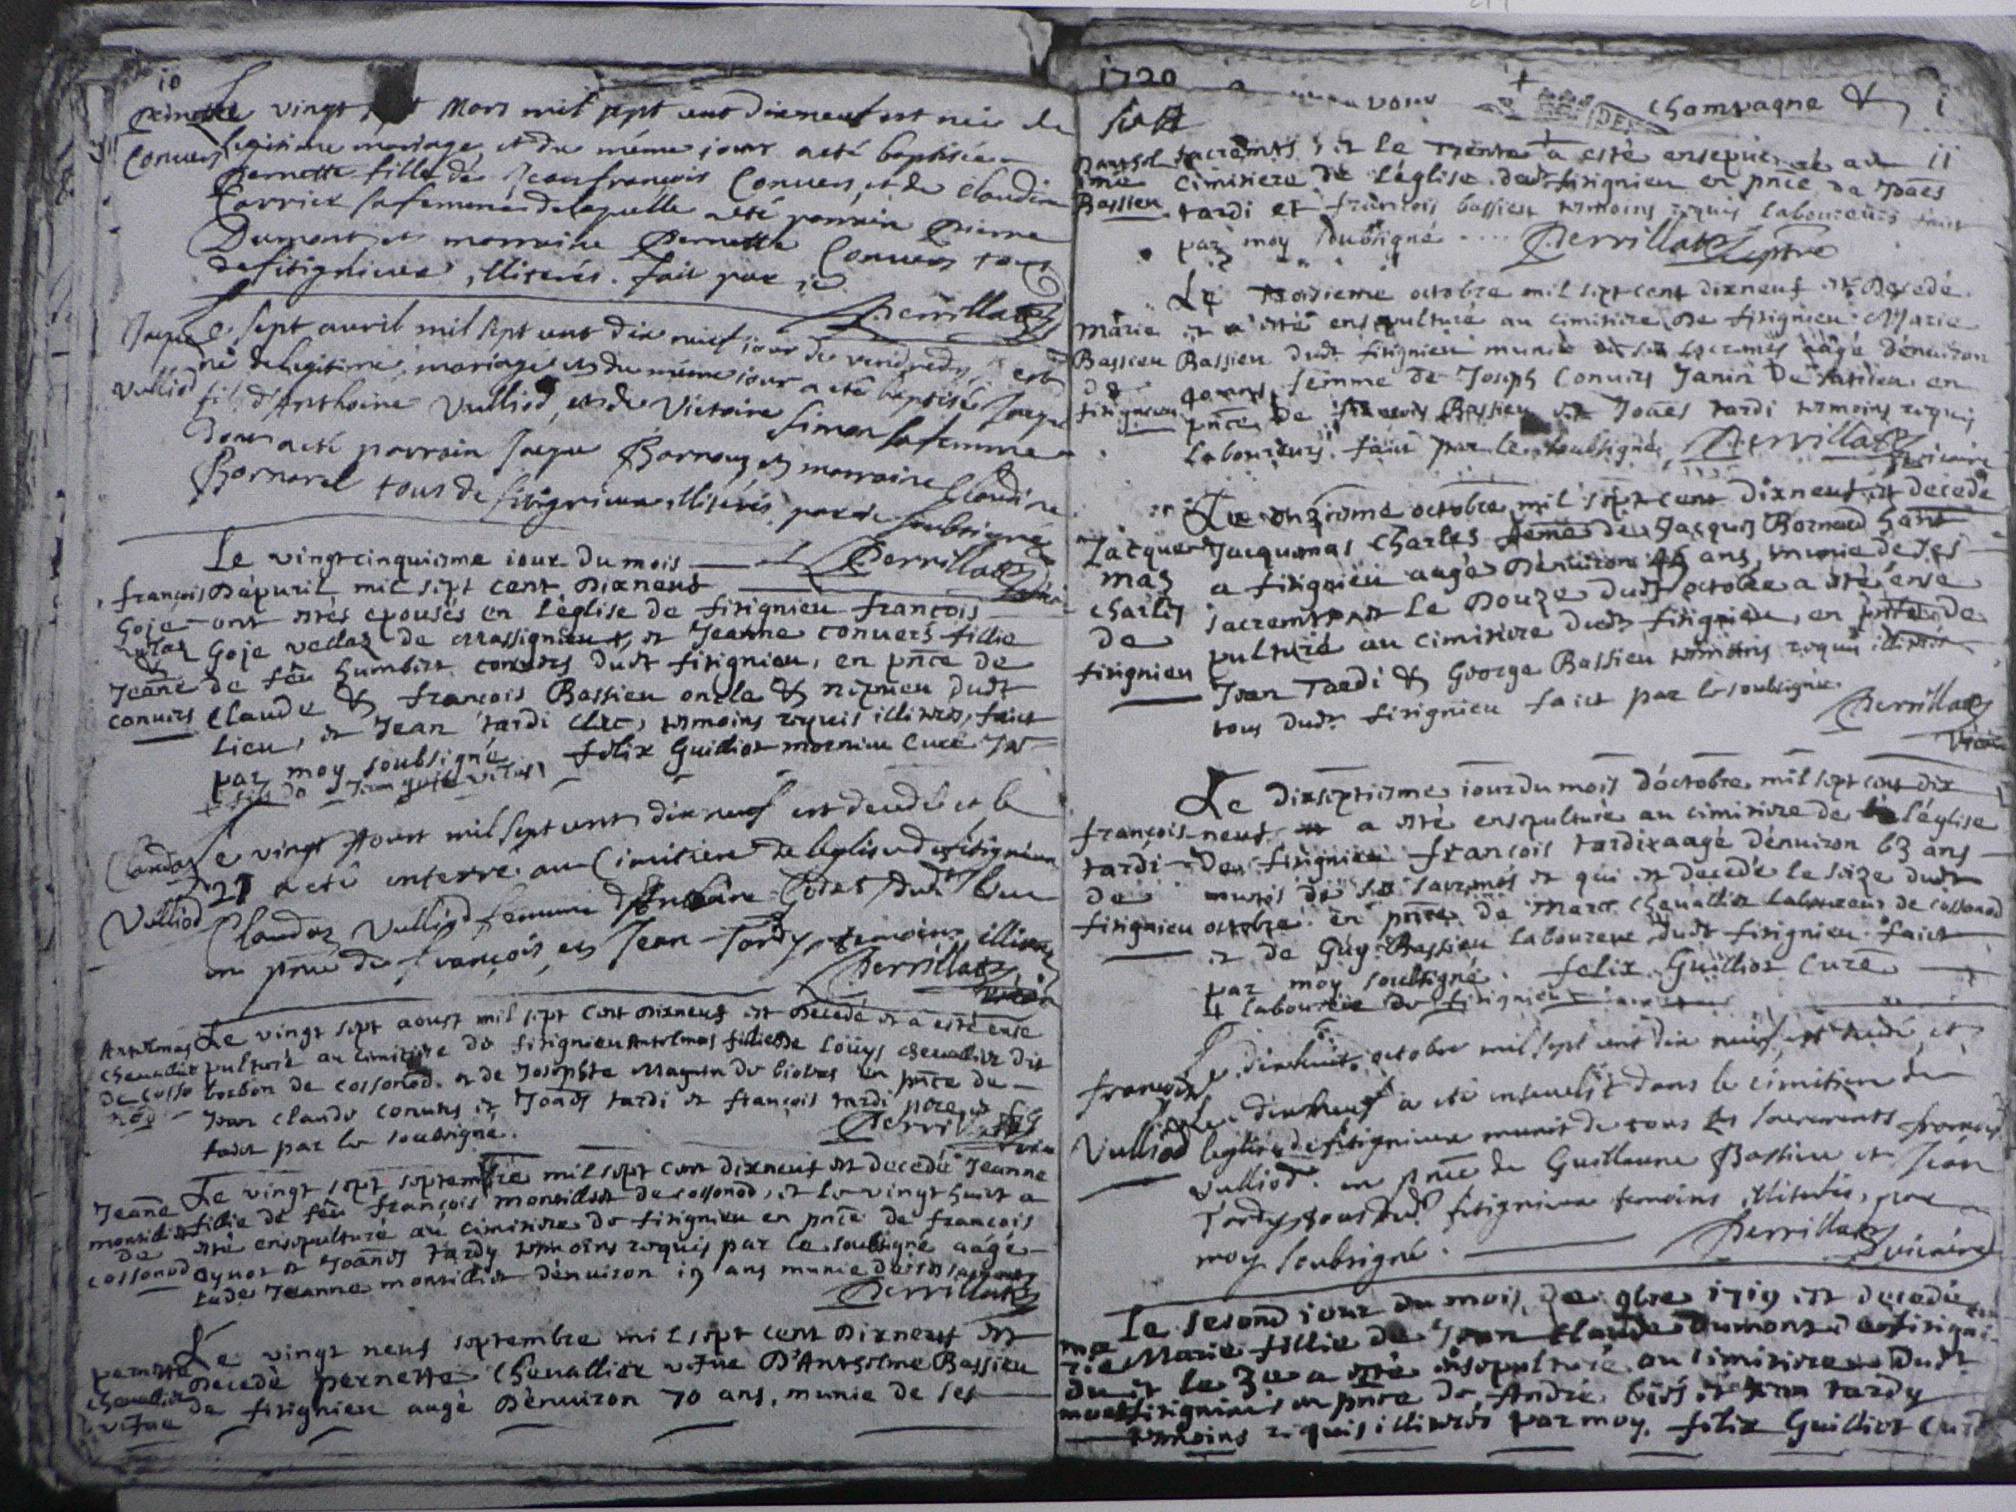 10
Pernette Le vingt Mars mil sept cent dixneuf est née de
Convers legitime mariage, et du même jour a eté baptisée
Pernette fille de Jean françois Convers, et de Claudine
Carrier sa femme de laquelle a eté parrain Pierre
Dumont et marraine Pernette Convers tous
de fitignieux, illiterés. fait par ie
Perrillat
Jaque Le sept avril mil sept cent dix neuf jour de vendredy, est
né de legitime mariage et du même jour a eté baptisé Jaque
Vulliod fils d'Anthoine Vulliod, et de Victoire Simon sa femme
dont a eté parrain Jaque Bornoz et marraine Claudine
Bornarel tous de fitignieux illiterés par ie soubsigné
Perrillat
Le vingtcinquiesme iour du mois
françois D'apuril mil sept cent Dixneuf
Goje ont estés epousés en l'église de fitignieu françois
Goje vellaz de Massignieu, et Jeanne convers fillie
& Jeane de feu humbert convers dudt fitignieu, en pnce de
convers Claude & françois Bassieu oncle & nepueu dudt
lieu, et Jean tardi clerc, temoins requis illiteres, faict
par moy soubsigné. felix Guilliot morniue Curé
+ fils de
Claudaz Le vingt Aoust mil sept cent dix neuf est decedé et le
Vulliod 21 a eté enterré au Cimitiere de leglise de fitignieu
Claudaz Vulliod femme d'Anthoine dudt lieu
en pnce de françois, et Jean Tardy, temoins illiteres
Perrillat
vicaire
Antelmaz Le vingt sept aoust mil sept cent dixneuf est decedé et a esté ense
chevallier pulturé au cimitiere de fitignieu Antelmaz fillie de Loüys chevallier dit
de Cosso borbon de cossonod. et de Josephte Magnin de biolaz en pnce de
nod Jean Claude convers et Joanes tardi et françois tardi pere et fils
faict par le soubsigné. Perrillat
Jeane Le vingt sept septembre mil sept cent dixneuf est decedée Jeanne
monilliet fillie de feu françois monilliet de cossonod, et le vingt huict a
de esté ensepulturé au cimitiere de fitignieu en pnce de françois
cossonod aynot et Joannes tardy temoins requis par le soubsigné aâgé
ladte Jeanne monilliet d'enuiron 19 ans munie de ses sacremts
Perrillat
pernette Le vingt neuf septembre mil sept cent Dixneuf est
chevallier Decedé pernette Chevallier vefue D'Antelme Bassieu
vefue de fitignieu augé D'enuiron 70 ans, munie de ses
1720
Champagne &
sacremts, et le trente a esté ensepulturé au ii
Bassieu cimitiere de l'église dudt fitignieu en pnce de Joães
tardi et francois bassieu temoins requis laboureurs faict
par moy soubsigné .... Perrillat
Le troisieme octobre mil sept cent dixneuf est decedé
Marie et a esté ensepulturé au cimitiere de fitignieu Marie
Bassieu Bassieu dudt fitignieu munie de ses sacremts aâgé d'enuiron
de 40 ans, femme de Joseph Convers Janin de en
fitignieu pnce de francois Bassieu et Joães tardi temoins requis
laboureurs. faict par le soubsigné, Perrillat
vicaire
Le onzieme octobre mil sept cent dixneuf est decedé
Jacque Jacquemaz Charles femme de Jacques Bornard
maz a fitignieu augé D'enuiron 45 ans, munie de ses
charles sacremts et le Douze dudt octobre a esté ense
de pulturé au cimitiere dudt fitignieu, en pnce de
fitignieu Jean Tardi & George Bassieu temoins requis illiteres
tous dudt fitignieu faict par le soubsigné
Perrillat
vicaire
Le dixseptiesme iour du mois d'octobre mil sept cent dix
françois neuf a esté ensepulturé au cimitiere de l'église
tardi de fitignieu françois tardi aagé d'enuiron 63 ans
de munis de ses sacremts et qui est decedé le seize dudt
fitignieu octobre en pnce de Marc chevallier laboureur de cossonod
et de Guy Bassieu laboureur dudt fitignieu. faict
par moy soubsigné. felix Guilliot Curé
+ laboureur de fitignieu
Le dixhuit octobre mil sept cent dix neuf, est decedé, et
françois le dixneuf a eté enseuelit dans le cimitiere de
Vulliod leglise de fitignieux munit de tous les sacrements françois
Vulliod. en pnce de Guillaume Bassieu et Jean
Tardy, tous dudt fitignieux temoins illiterés, par
moy soubsigné. Perrillat
vicaire
Le second iour du mois de 9bre 1719 est decedée
ma rie Marie fillie de Jean Claude Dumont de fitigni
du et le 3e a esté ensepulturé au cimitiere dudt
mont fitignieu, en pnce de André et Jean tardy
temoins requis illiteres par moy. felix Guilliot Curé